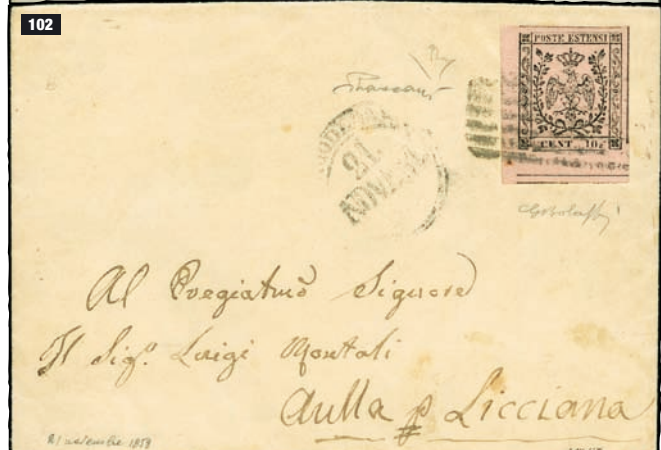 102
POSTE ESTENSI
CENT. 10.
MODENA
21
NOVEMB.
Al Pregiatmo Signore
Il Sigr. Luigi Montali
Aulla p Licciana
21 novembre 1859